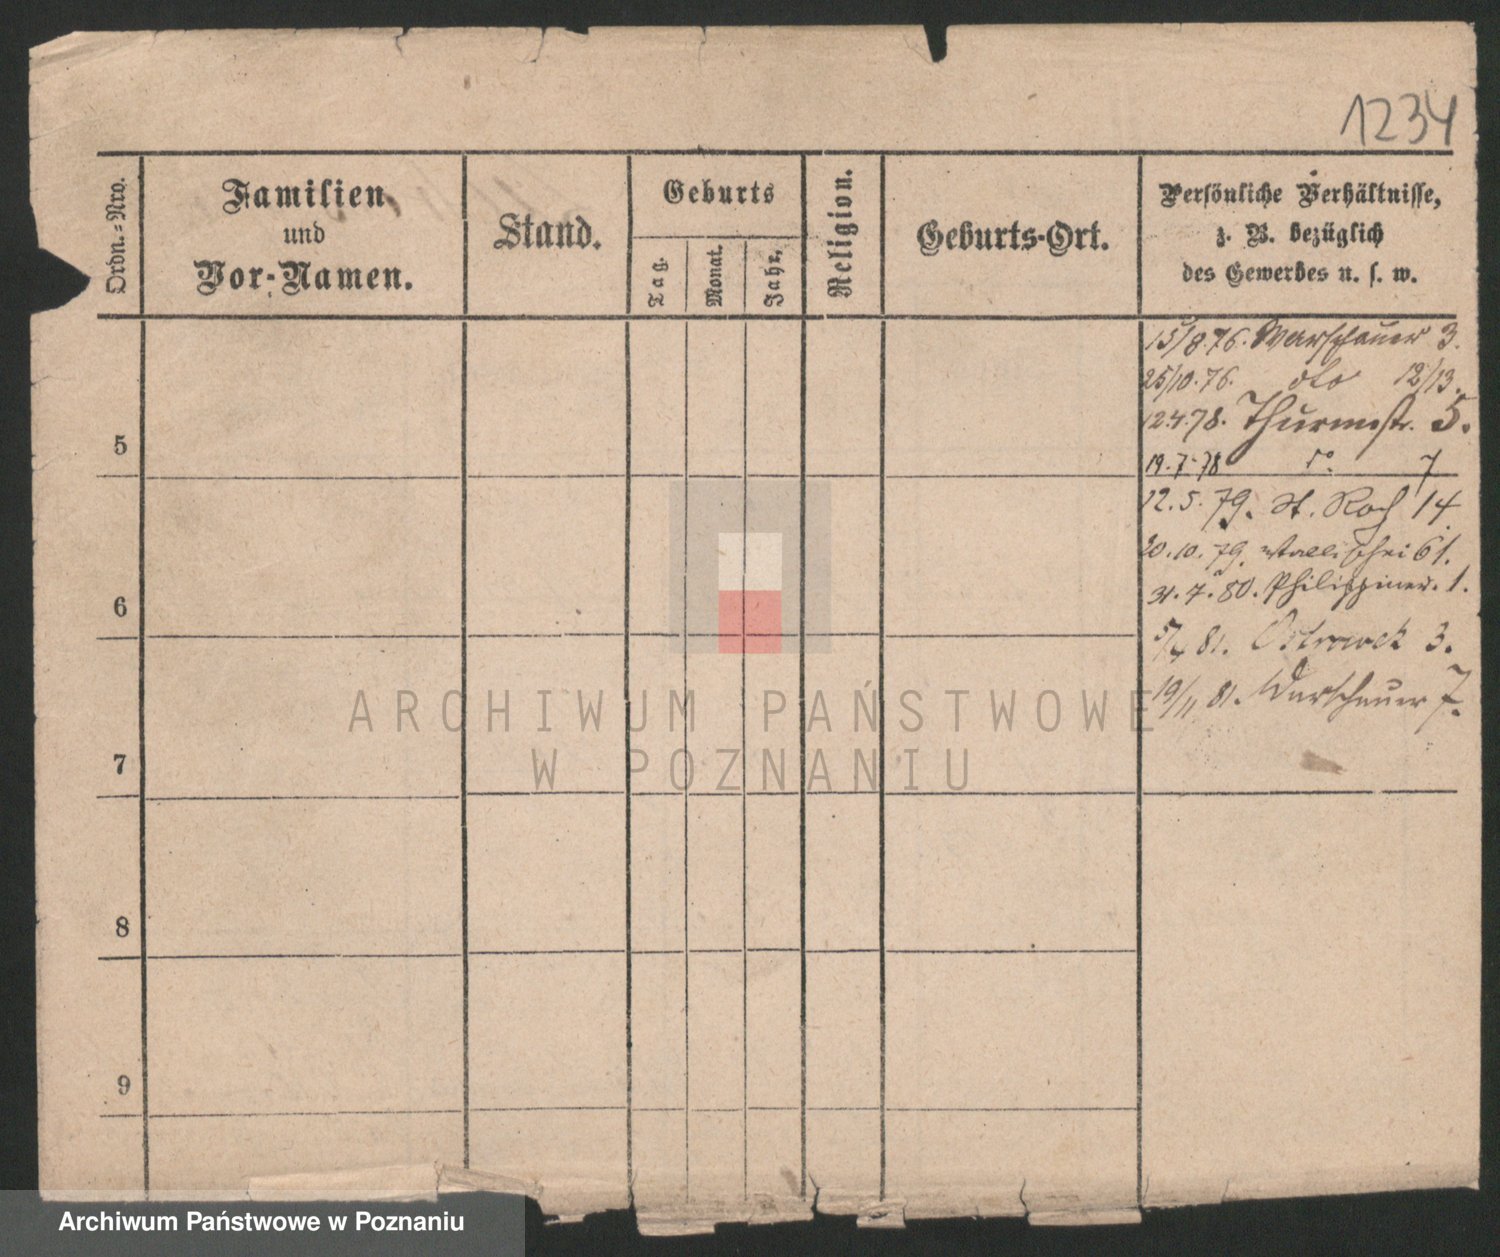 1234
Ordn.-Nro.
Familien
und
Vor-Namen.
Stand.
Geburts
Tag.
Monat.
Jahr.
Religion.
Geburts-Ort.
Persönliche Verhältnisse,
z. B. bezüglich
des Gewerbes u. s. w.
15/8.76. Warschauer 3.
25/10.76. dto 12/13.
12.4.78. Thurmstr. 5.
5
19.7.78 do. 7
12.5.79. St. Roch 14.
20.10.79. Wallischei 61.
31.7.80. Philippiner. 1.
6
5/4 81. Ostrowek 3.
19/11 81. Warschauer 7.
7
8
9
ARCHIWUM PAŃSTWOWE
W POZNANIU
Archiwum Państwowe w Poznaniu